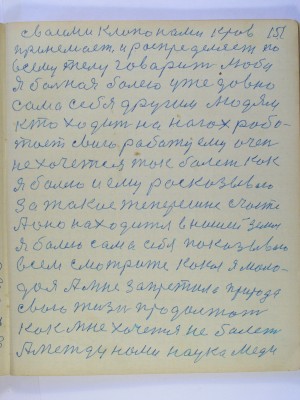 своими клопонами кров 151
принемает и роспределяет по
всему телу говарит Люба
Я больная болею уже довно
сама себя другим людям
кто ходит на ногох рабо-
тает свою работу ему очен
не хочется так болет как
Я болею и ему росказываю
За такие теперешние счасте
А оно находится в нашей Земли
Я болею сама себя показываю
всем смотрите кокая я моло-
дая А мне запретила природа
свою жизн продолжат
как мне хочется не болет
А между нами наука меди